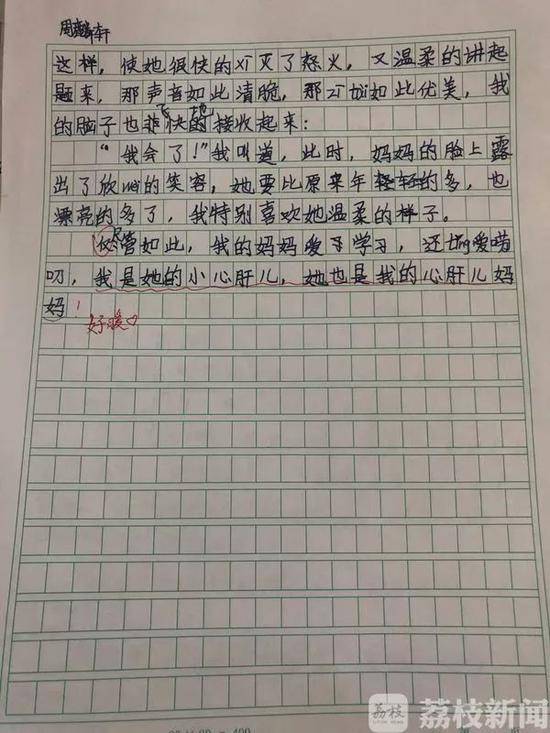 周麟轩
这样，使她很快的xī灭了怒火，又温柔的讲起
题来，那声音如此清脆，那zī tài如此优美，我
的脑子也飞快的接收起来：
“我会了！”我叫道，此时，妈妈的脸上露
出了欣wèi的笑容，她要比原来年轻轻的多，也
漂亮的多了，我特别喜欢她温柔的样子。
尽管如此，我的妈妈爱学习，还tǐng爱唠
叨，我是她的小心肝儿，她也是我的心肝儿妈
妈！
好暖♡
荔枝
荔枝新闻